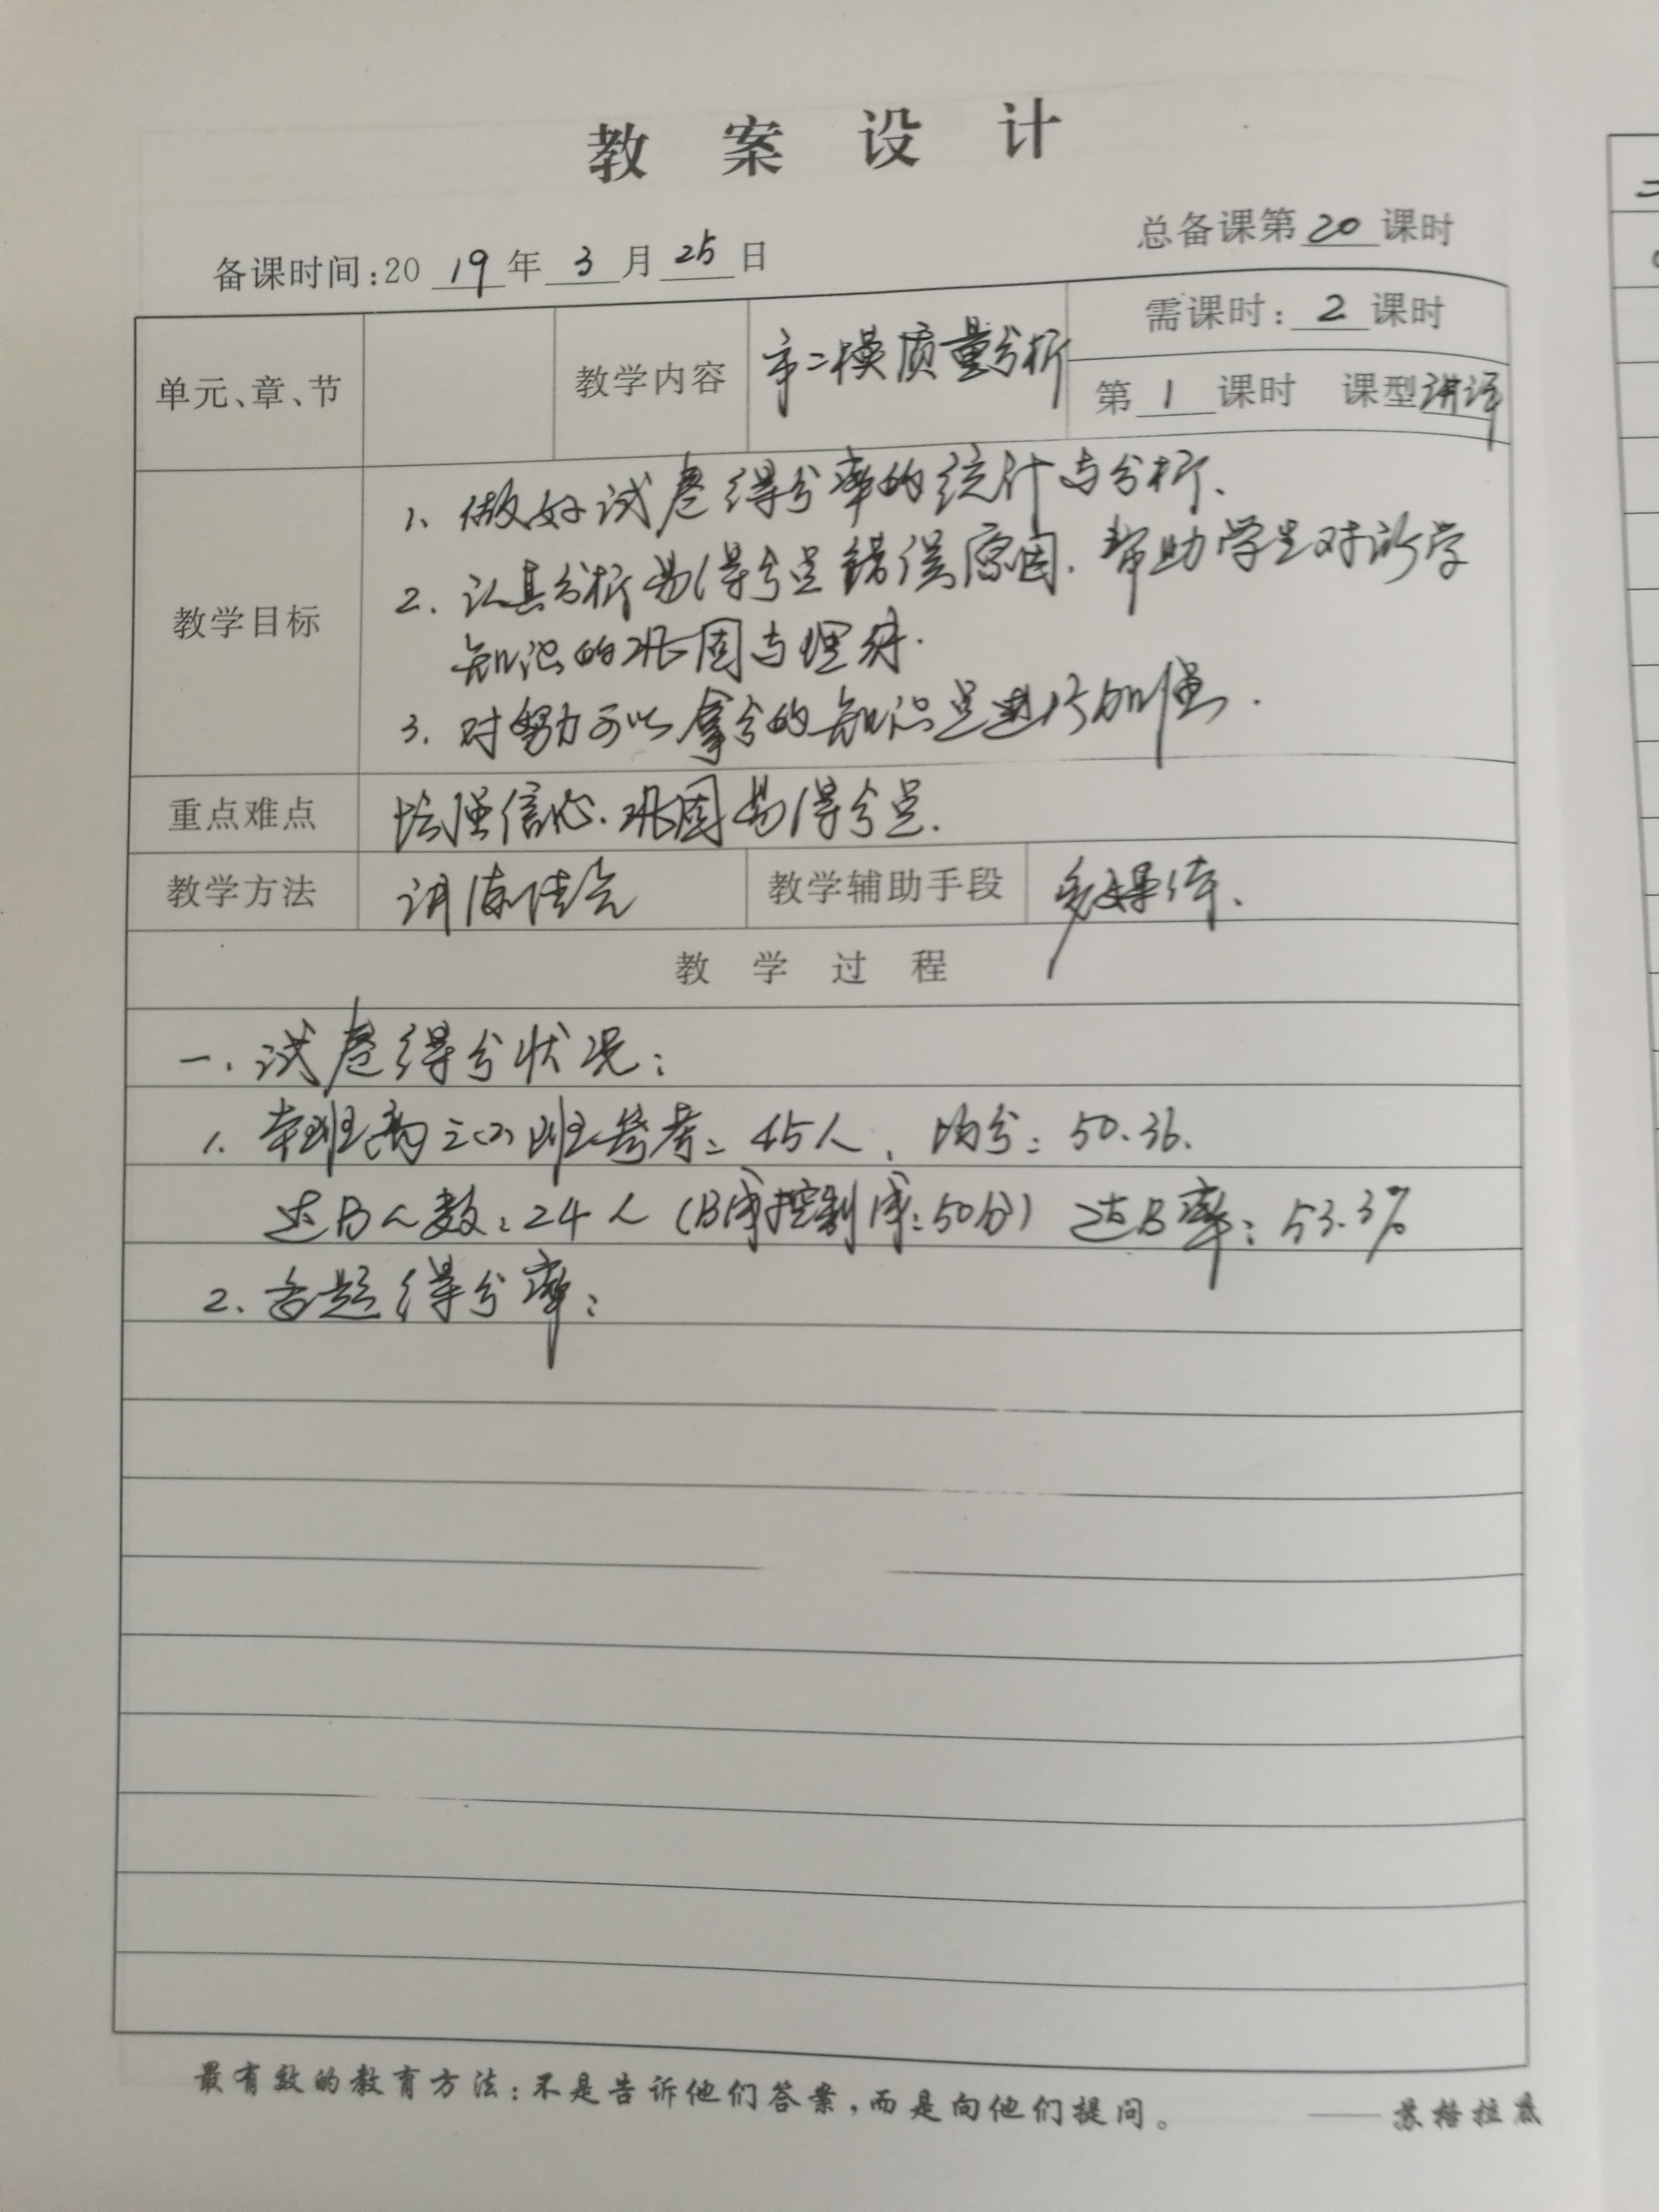 教案设计
总备课第20课时
备课时间:2019年3月25日
单元、章、节 教学内容 市二模质量分析 需课时:2课时
第1课时 课型讲评
教学目标
1、做好试卷得分率的统计与分析、
2.认真分析易得分点错误原因.帮助学生对所学
知识的巩固与理解.
3.对努力可以拿分的知识点进行加强.
重点难点 增强信心.巩固易得分点.
教学方法 讲练结合 教学辅助手段 多媒体、
教学过程
一.试卷得分状况:
1.本班高三(2)班参考:45人、均分:50.36.
达B人数:24人(B等控制等:50分) 达B率:53.3%
2.各题得分率:
最有效的教育方法:不是告诉他们答案,而是向他们提问。 ——苏格拉底